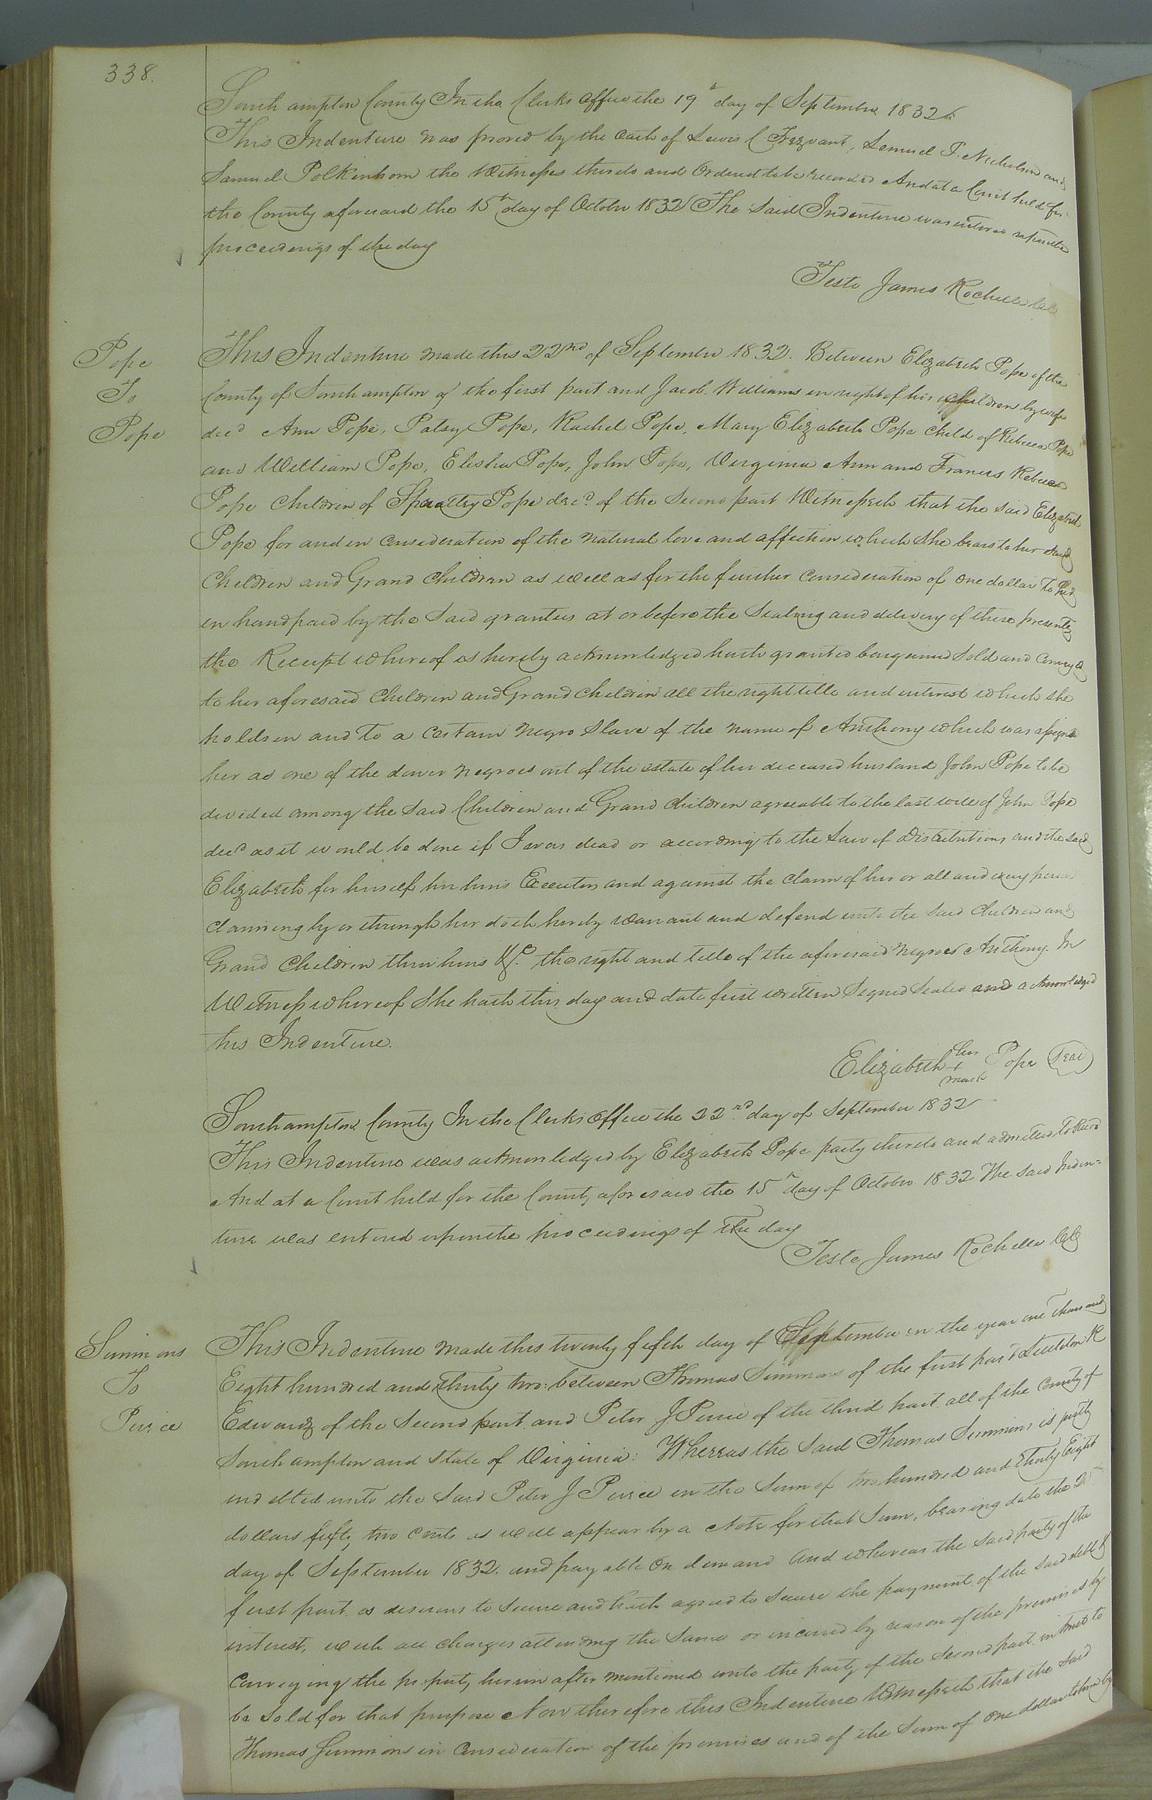 338.
South ampton County In the Clerks Office the 19th day of September 1832
This Indenture was proved by the oath of Lewis C Trezvant, Lemuel P. Nicholson and
Samuel Polkinhorn the Witnesses thereto and Ordered to be recorded And at a Court held for
the County aforesaid the 15th day of October 1832 The Said Indenture was entered upon the
proceedings of the day
Teste James Rochelle Clk
Pope
To
Pope
This Indenture made this 22nd of September 1832. Between Elizabeth Pope of the
County of Southampton of the first part and Jacob Williams in right of his children by wife
decd Ann Pope, Patsey Pope, Rachel Pope, Mary Elizabeth Pope child of Rebecca Pope
and William Pope, Elisha Pope, John Pope, Virginia Ann and Frances Rebecca
Pope Children of Spratley Pope decd. of the Second part Witnesseth that the said Elizabeth
Pope for and in Consideration of the natural love and affection which She bears to her said
Children and Grand Children as well as for the further Consideration of one dollar to her
in hand paid by the Said grantees at or before the Sealing and delivery of these presents
the Receipt whereof is hereby acknowledged hath granted bargained Sold and Convey d
to her aforesaid Children and Grand Children all the right title and interest which she
holds in and to a Certain negro Slave of the name of Anthony which was assigned
her as one of the dower negroes out of the estate of her deceased husband John Pope to be
devided among the said Children and Grand Children agreeable to the last will of John Pope
decd as it would be done if I was dead or according to the Law of Distributions and the said
Elizabeth for herself her heirs Executors and against the claim of her or all and every person
claiming by or through her doth hereby warrant and defend unto the said Children and
Grand Children their heirs &c. the right and title of the aforesaid negroe Anthony. In
Witness whereof She hath this day and date first written Signed Sealed and acknowledged
this Indenture.
Elizabeth her + mark Pope Seal
Southampton County In the Clerks Office the 22nd day of September 1832
This Indenture was acknowledged by Elizabeth Pope party thereto and admitted to Record
And at a Court held for the County aforesaid the 15th day of October 1832 The Said Inden=
ture was entered upon the proceedings of the day
Teste James Rochelle Clk
Simmons
To
Peirce
This Indenture made this twenty fifth day of September in the year one Thousand
Eight hundred and thirty two: between Thomas Simmons of the first part Littleton R
Edwards of the Second part and Peter J Peirce of the third part all of the County of
South ampton and State of Virginia: Whereas the Said Thomas Simmons is justly
indebted unto the Said Peter J Peirce in the Sum of two hundred and thirty Eight
dollars fifty two cents as well appear by a Note for that Sum, bearing date the 25
day of September 1832. and payable on demand And whereas the Said party of the
first part is desirous to Secure and hath agreed to Secure the payment of the said debt &
interest, with all charges attending the Same or incurred by reason of the premises by
Conveying the property herein after mentioned unto the party of the Second part in trust to
be Sold for that purpose Now therefore this Indenture Witnesseth that the Said
Thomas Simmons in Consideration of the premises and of the Sum of one dollar to him by